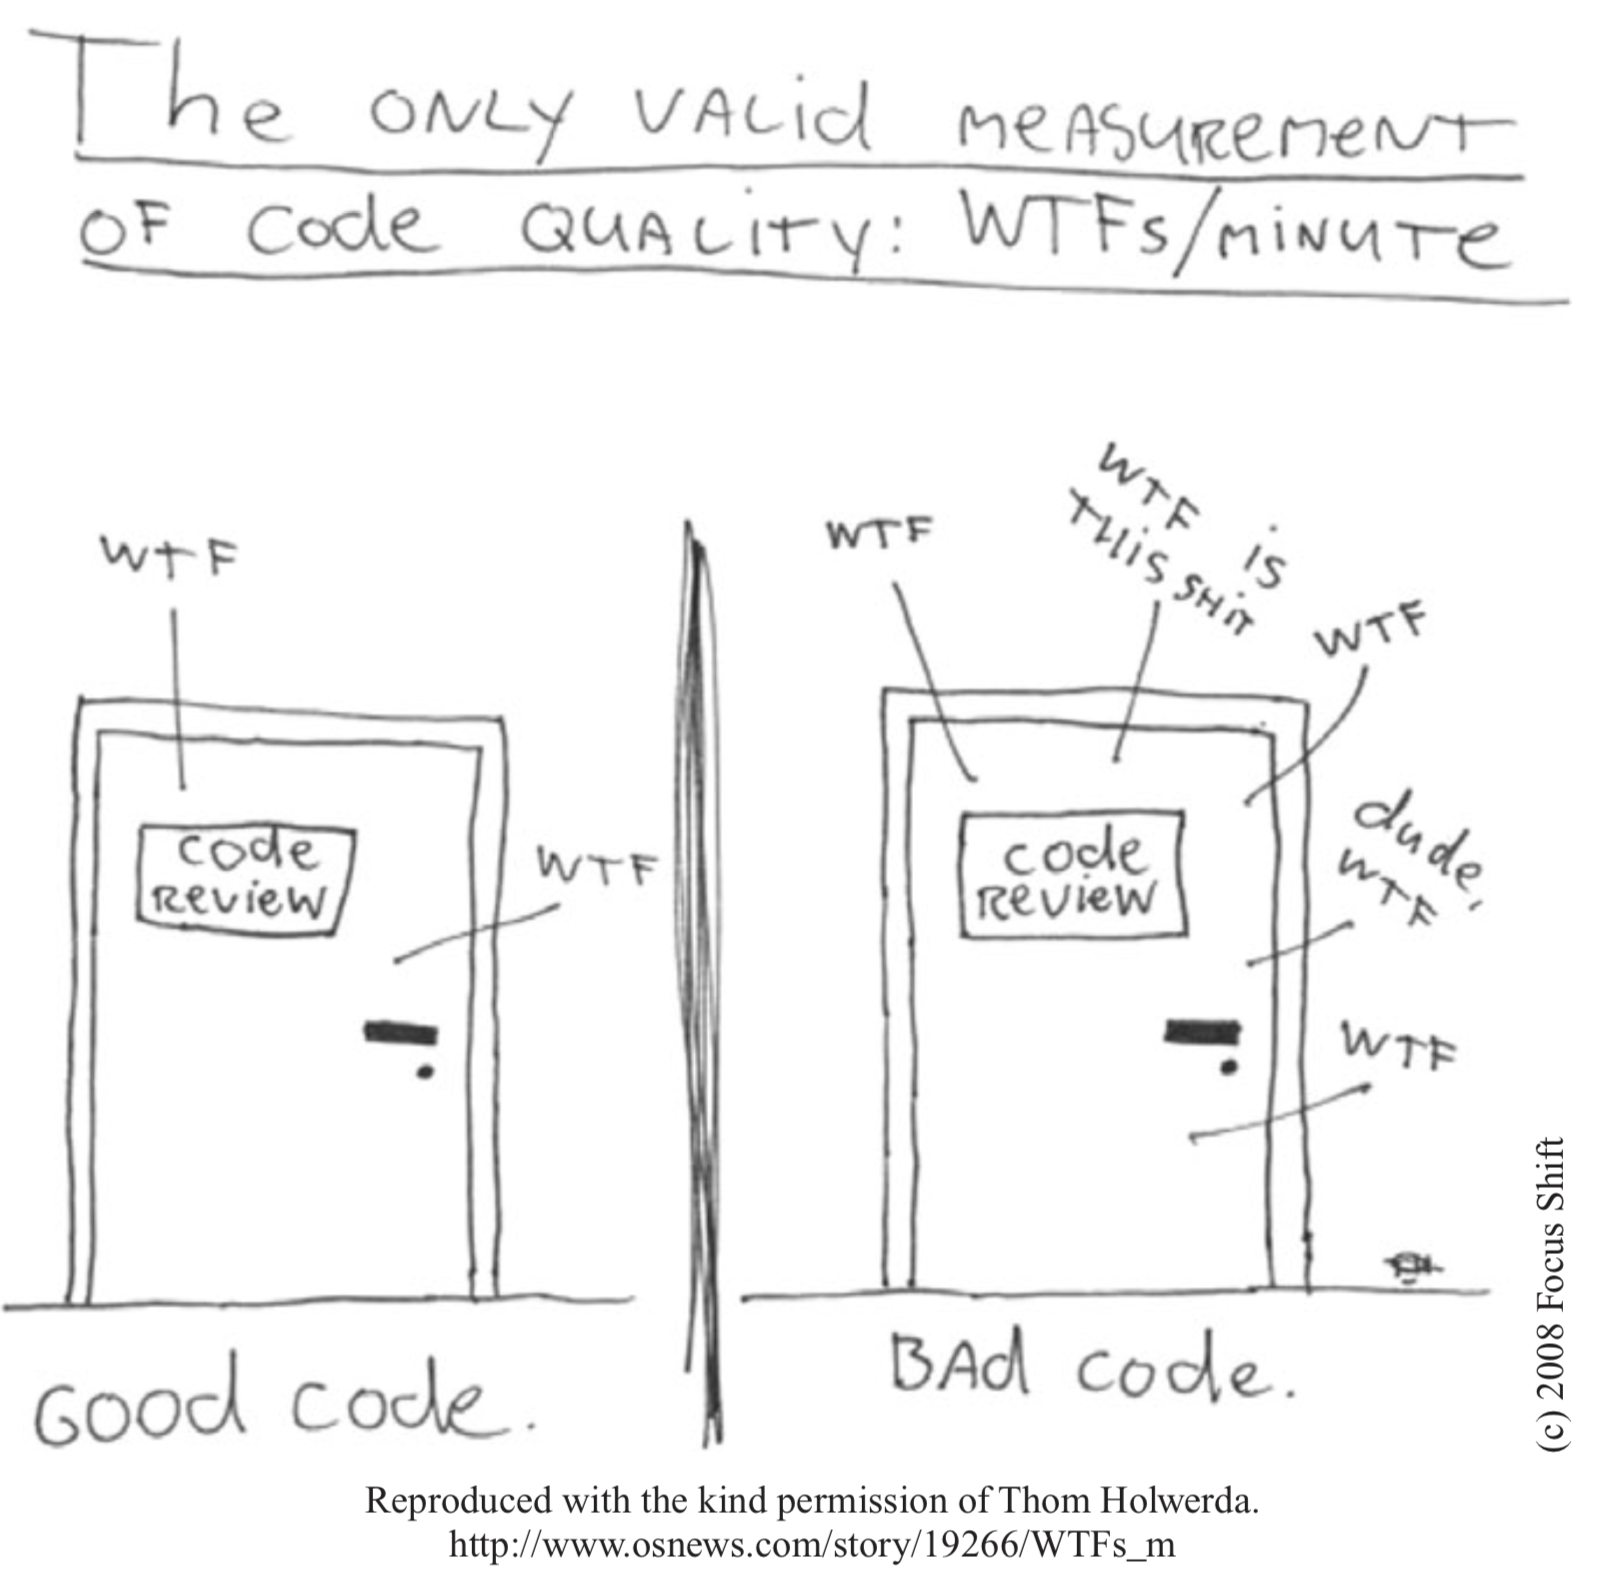 The ONLY VALid MEASUREMENT
OF Code QUALITY: WTFs/MINUTE
WTF
code
REVIEW
WTF
Good code.
WTF
WTF is
THiS SHiT
WTF
code
REVIEW
dude,
WTF
WTF
BAd code.
(c) 2008 Focus Shift
Reproduced with the kind permission of Thom Holwerda.
http://www.osnews.com/story/19266/WTFs_m